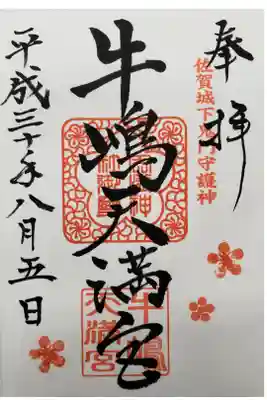 奉拝
佐賀城下鬼門守護神
牛嶋天満宮
平成三十年八月五日
牛嶋
天満宮